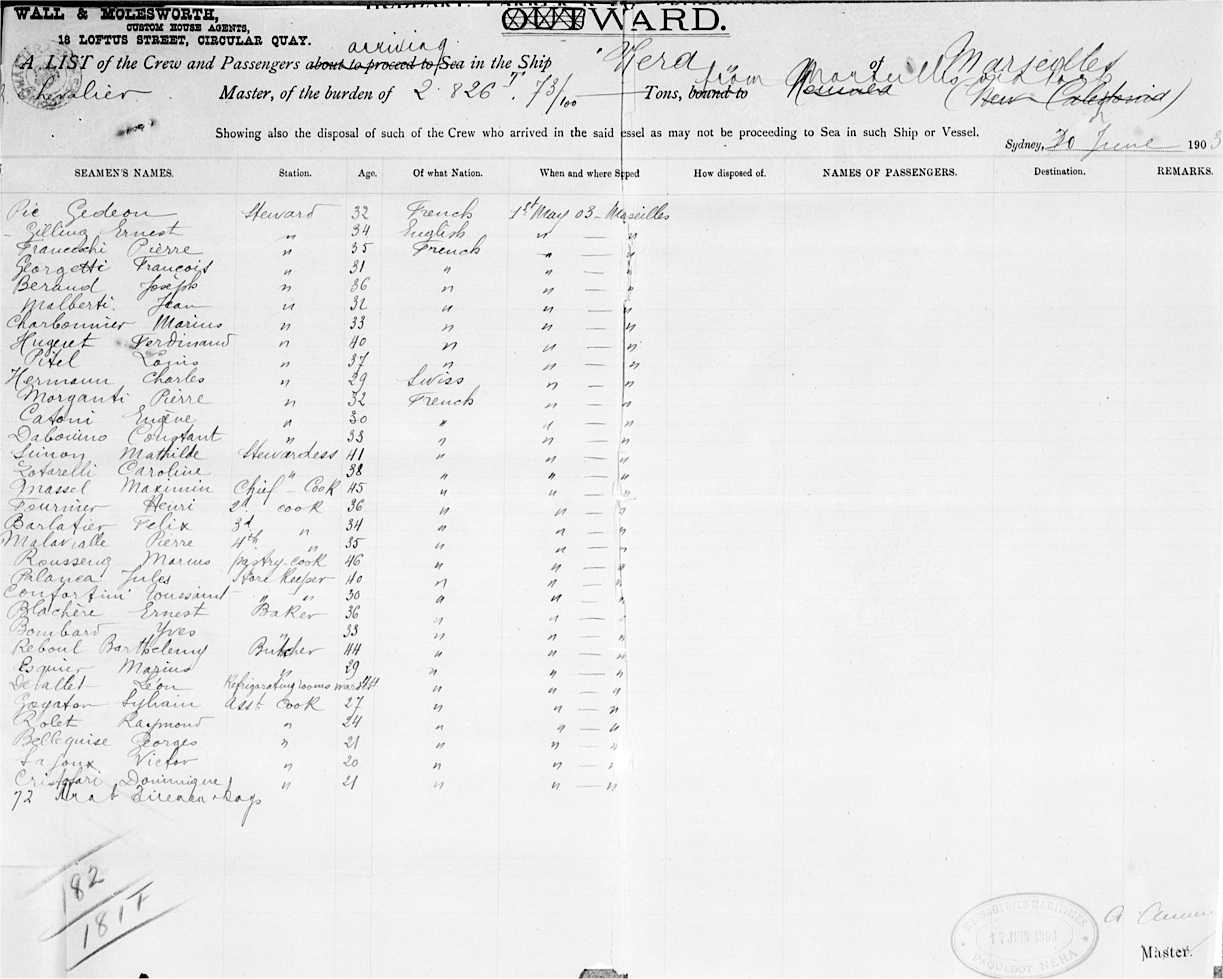 WALL & MOLESWORTH,
CUSTOM HOUSE AGENTS,
18 LOFTUS STREET, CIRCULAR QUAY.
OUTWARD.
arriving
A LIST of the Crew and Passengers about to proceed to Sea in the Ship "Nera" of Marseilles
Chevalier Master, of the burden of 2.826 T. 73/100 Tons, bound to from Marseilles Nouméa (New Caledonia)
Showing also the disposal of such of the Crew who arrived in the said essel as may not be proceeding to Sea in such Ship or Vessel.
Sydney, 30 June 1903
SEAMEN'S NAMES. Station. Age. Of what Nation. When and where Spped How disposed of. NAMES OF PASSENGERS. Destination. REMARKS.
Pic Gedeon Steward 32 French 1st May 03 - Marseilles
Zilling Ernest " 34 English " — "
Franceschi Pierre " 35 French " — "
Georgetti François " 31 " " — "
Beraud Joseph " 36 " " — "
Malberti Jean " 32 " " — "
Charbonnier Marius " 33 " " — "
Hugeret Ferdinand " 40 " " — "
Pitel Louis " 37 " " — "
Hermann Charles " 29 Swiss " — "
Morganti Pierre " 32 French " — "
Catoni Eugène " 30 " " — "
Dabovino Constant " 33 " " — "
Simon Mathilde Stewardess 41 " " — "
Zotarelli Caroline " 38 " " — "
Massel Maximin Chief - Cook 45 " " — "
Fournier Henri 2d cook 36 " " — "
Barlatier Felix 3d " 34 " " — "
Malavialle Pierre 4th " 35 " " — "
Rousseng Marius pastry-cook 46 " " — "
Palanca Jules Store Keeper 40 " " — "
Confortini Toussaint " " 30 " " — "
Blachère Ernest Baker 36 " " — "
Bombard Yves " 33 " " — "
Reboul Barthelemy Butcher 44 " " — "
Esquier Marius " 29 " " — "
Devallet Léon Refrigerating rooms " " — "
Goyaton Sylvain asst cook 27 " " — "
Rolet Raymond " 24 " " — "
Belleguise Georges " 21 " " — "
Lafoux Victor " 20 " " — "
Cristofari Dominique " 21 " " — "
72 Arab Firemen &
182
181T
MESSAGERIES MARITIMES
17 JUIN 1903
PAQUEBOT NERA
Master.